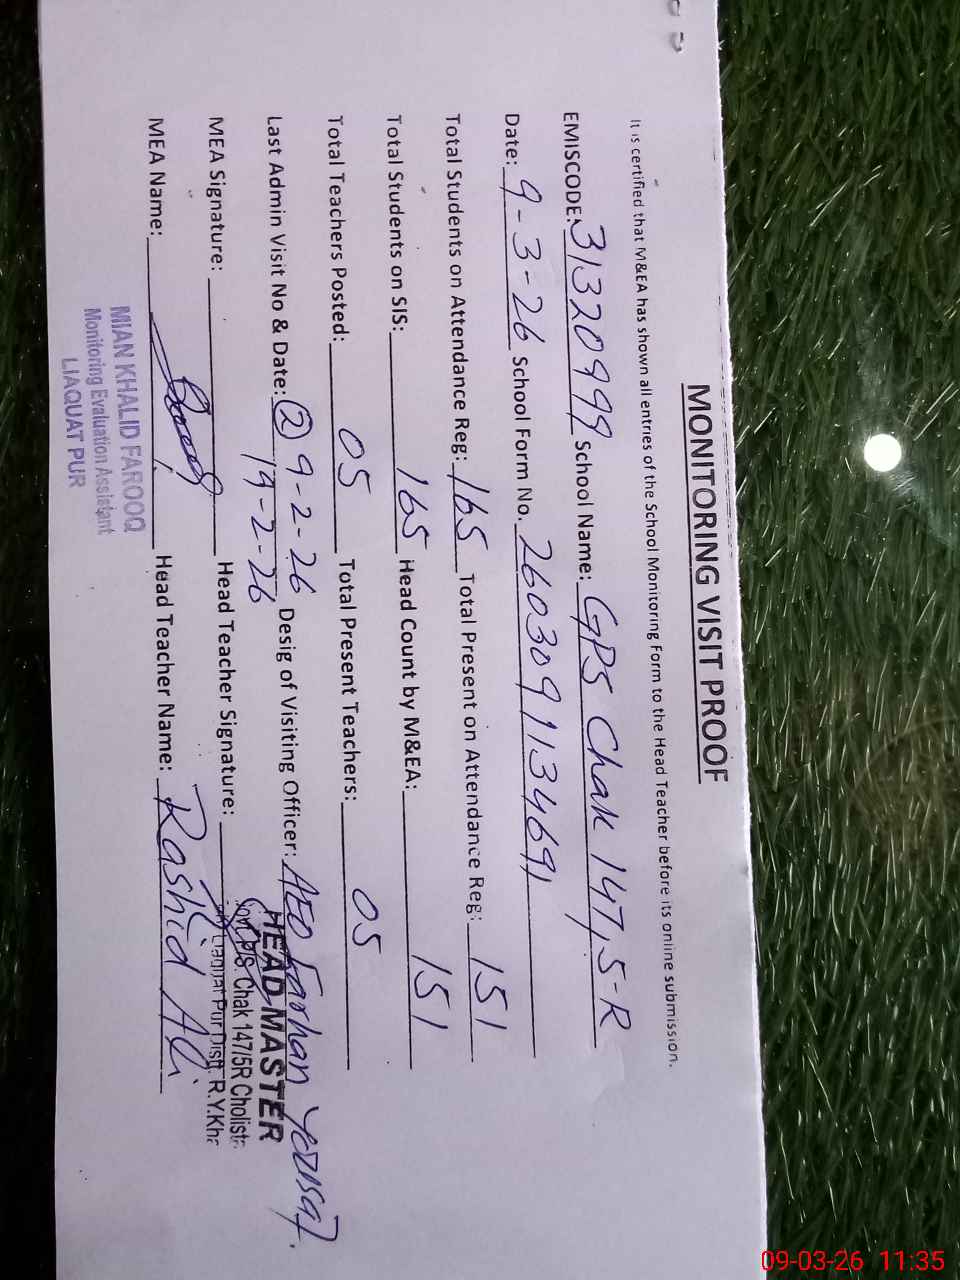 MONITORING VISIT PROOF
It is certified that M&EA has shown all entries of the School Monitoring Form to the Head Teacher before its online submission.
EMISCODE: 31320999 School Name: GPS Chak 147,5-R
Date: 9-3-26 School Form No. 2603091134691
Total Students on Attendance Reg: 165 Total Present on Attendance Reg: 151
Total Students on SIS: 165 Head Count by M&EA: 151
Total Teachers Posted: 05 Total Present Teachers: 05
Last Admin Visit No & Date: (2) 9-2-26 Desig of Visiting Officer: AEO Farhan Yousaf.
19-2-26
MEA Signature: Head Teacher Signature:
HEAD MASTER
Govt. P/S. Chak 147/5R Cholist
Liaquat Pur Distt. R.Y.Kha
MEA Name: Head Teacher Name: Rashid Ali
MIAN KHALID FAROOQ
Monitoring Evaluation Assistant
LIAQUAT PUR
09-03-26 11:35